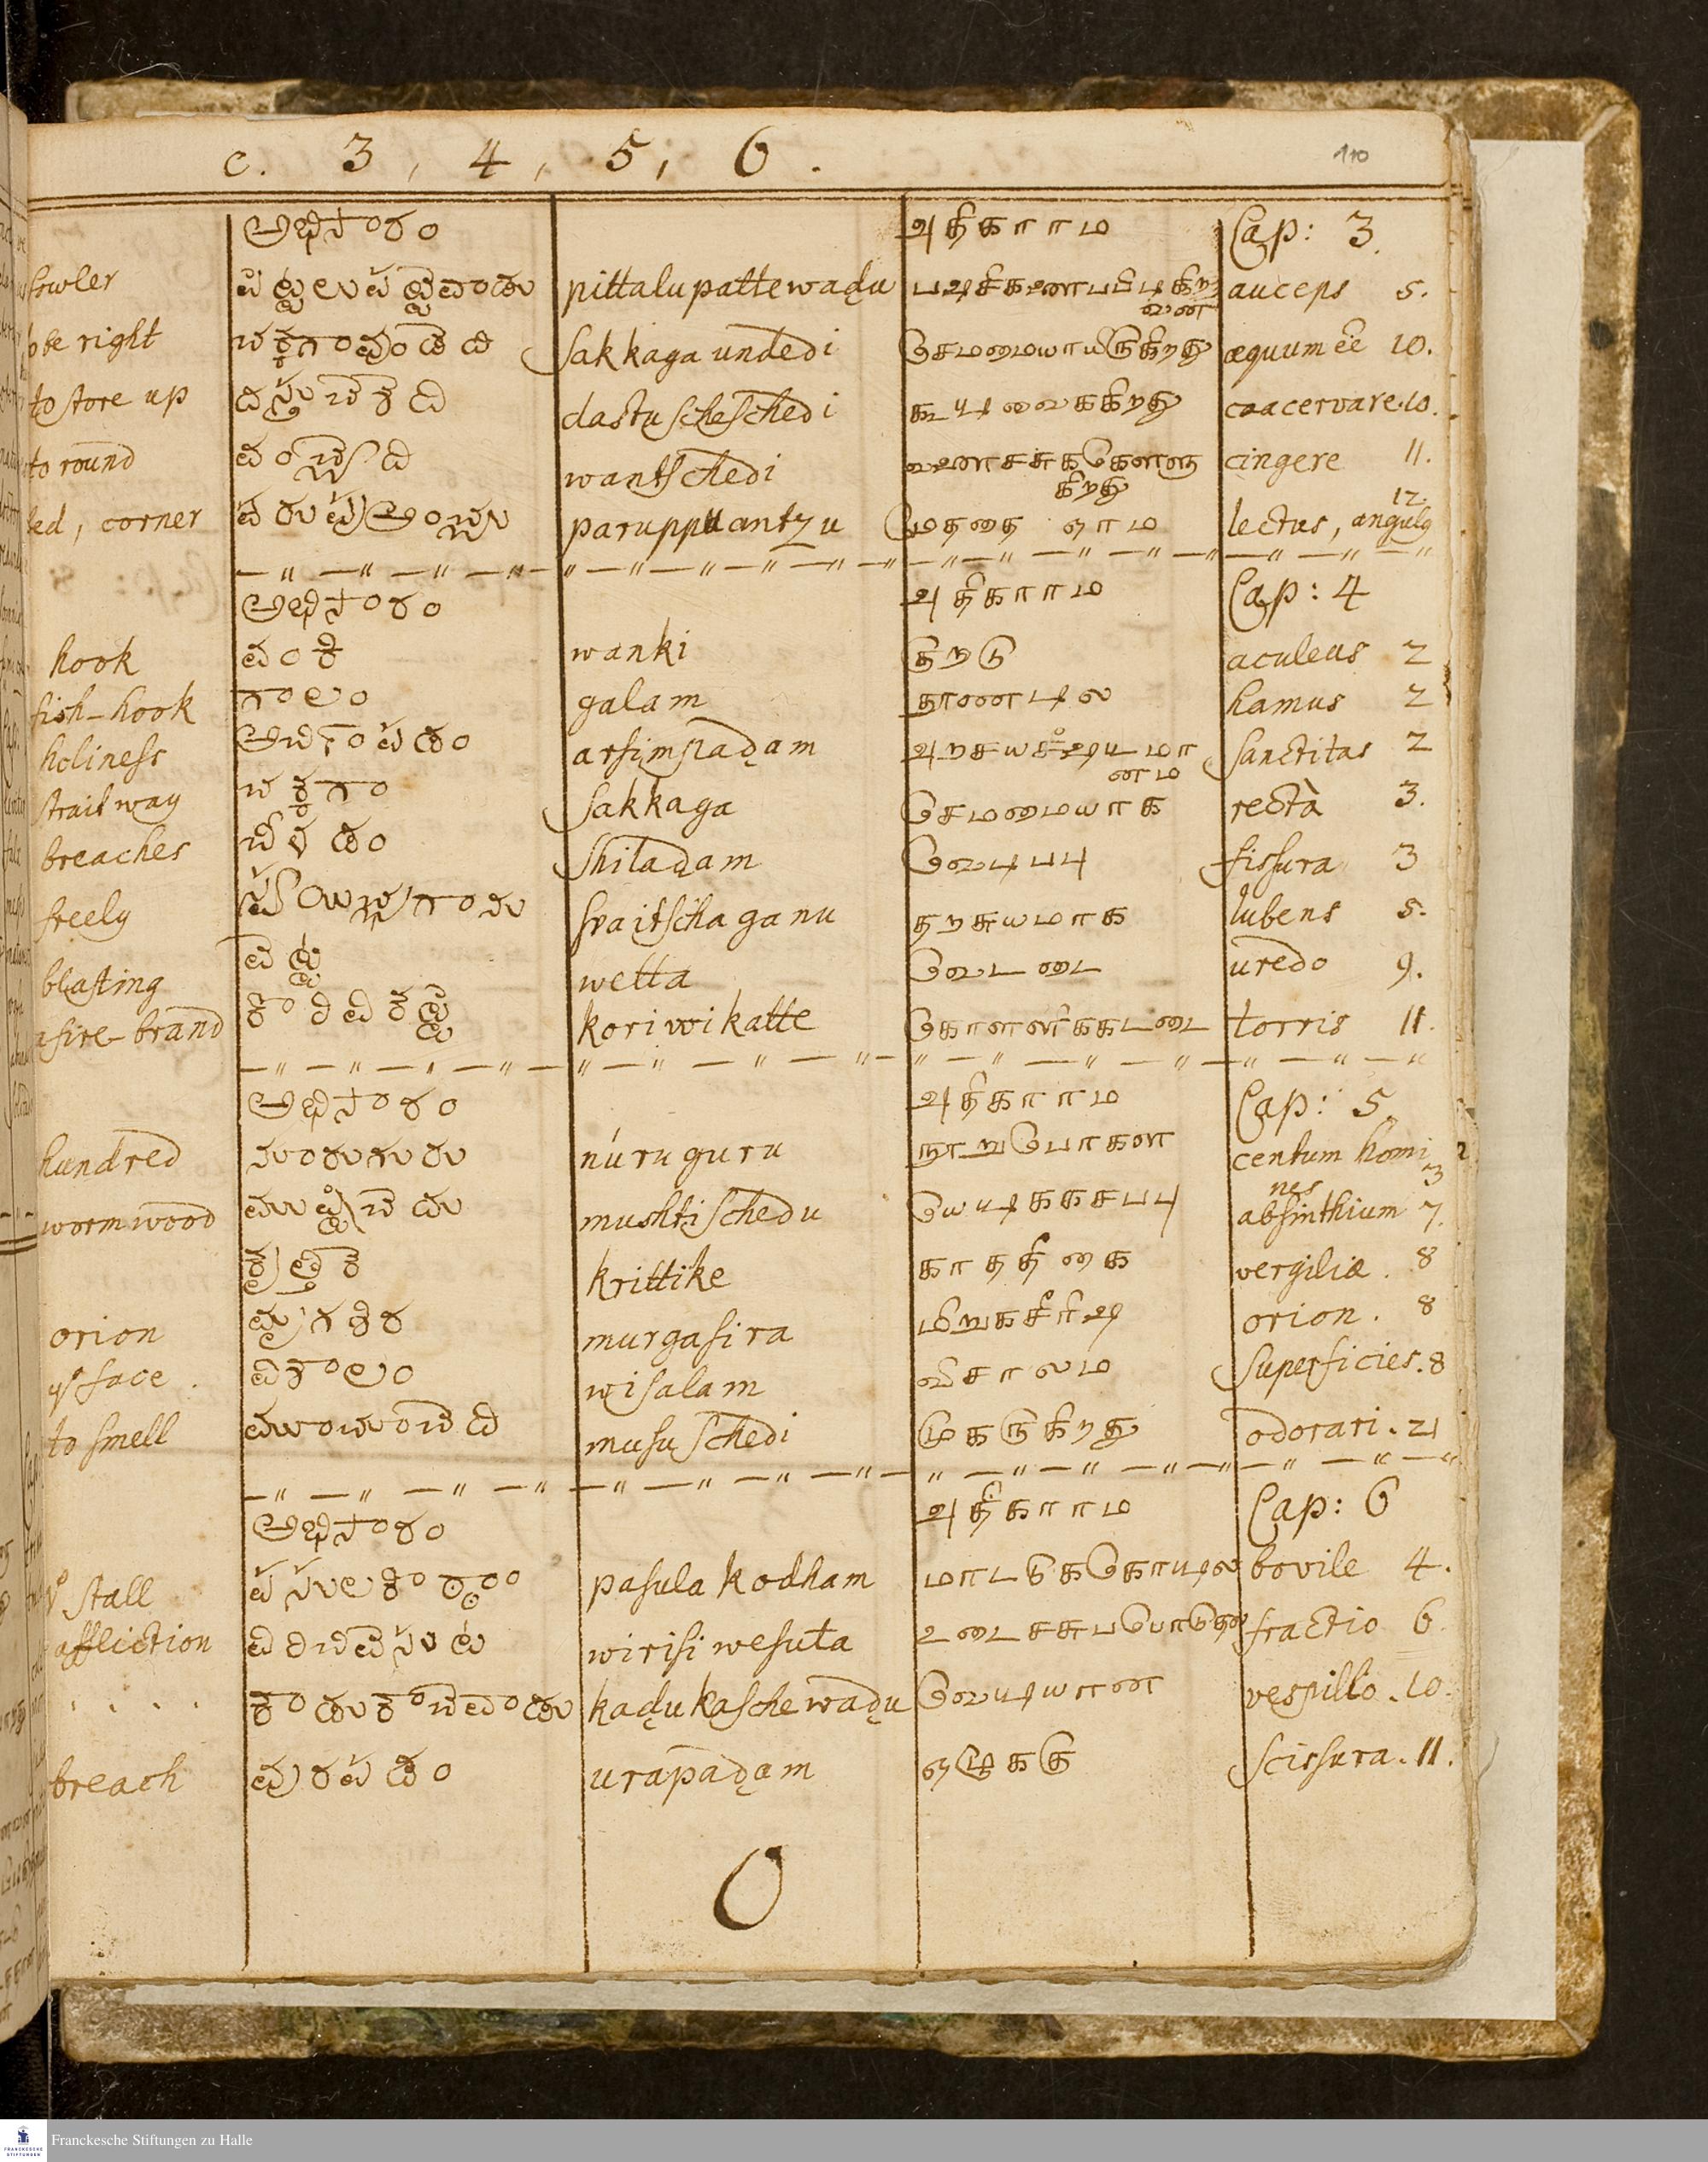 c. 3, 4, 5, 6. 110
అధికారం அதிகாரம Cap: 3.
fowler పిట్టలుపట్టెవాడు pittalupattewadu auceps 5.
be right చక్కగావుండేది sakkagaundedi æquum ēe 10.
to store up దస్తుచేశేది dastuscheschedi கூடிவைககிறது coacervare. 10.
to round వంచ్చేది wantschedi cingere 11.
bed, corner పరుపుఅంచ్చు paruppuantzu மெததை ஓரம lectus, angulg 12.
అధికారం அதிகாரம Cap: 4
hook వంకి wanki குறடு aculeus 2
fish-hook గాలం galam தூணடில hamus 2
holiness arsimpadam sanctitas 2
strait way చక్కగా sakkaga செமமையாக rectà 3.
breaches schiladam வெடிபபு fissura 3
freely స్వయిచ్ఛగాను svaitschaganu lubens 5.
blasting వెట్ట wetta வெடடை uredo 9.
a fire-brand కొరివికట్టె koriwikatte கொளளிககடடை torris 11.
అధికారం அதிகாரம Cap: 5.
hundred నూరుగురు núruguru நூறுபோகள centum homi 2
nes 3
wormwood ముష్టిచేదు mushtischedu absinthium 7.
క్రిత్తికె krittike காததிகை vergiliæ. 8
orion మృగశిర murgasira மிறுகசீரிஷ orion. 8
ye face విశాలం wisalam விசாலம superficies. 8
to smell మూచూచేది mususchedi முகருகிறது odorari. 21
అధికారం அதிகாரம Cap: 6
ye Stall పసులకొఠాం pasulakodham மாடடுககொடடில bovile 4.
affliction విరిచివేసుట wirisiwesuta fractio 6.
. . . . కాడుకాచేవాడు kadukaschewadu வெடடியான vespillo. 10.
breach urapadam ஒழுககு scissura. 11.
O
FRANCKESCHE STIFTUNGEN
Franckesche Stiftungen zu Halle